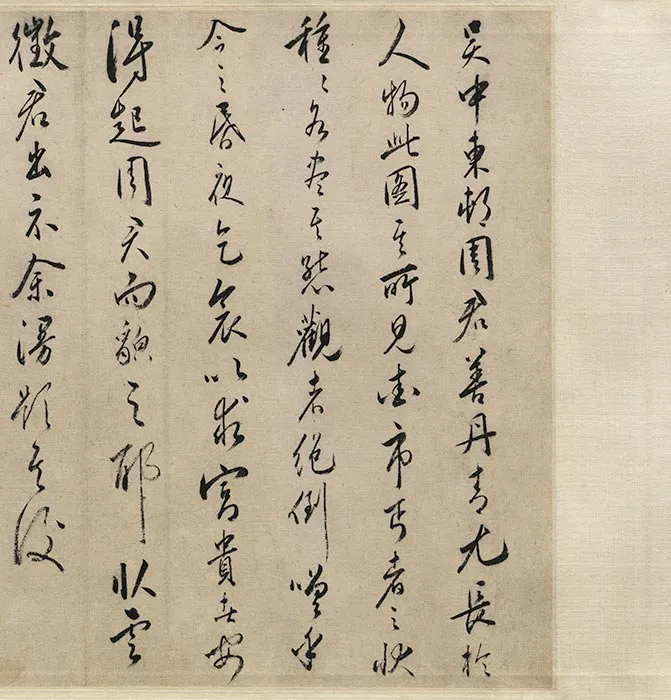 吳中東邨周君善丹青尤長於
人物此圖其所見盡市丐者之狀
種種各盡其態觀者絕倒嗟乎
今之昏夜乞哀以求富貴者安
得起周君而貌之耶臥雲
徵君出示余漫題其後